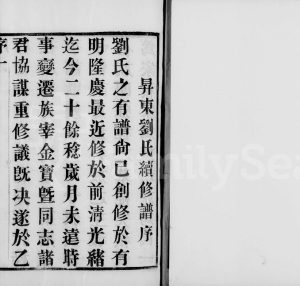 昇東劉氏續修譜序
劉氏之有譜尙已創修於有
明隆慶最近修於前清光緒
迄今二十餘稔歲月未遠時
事變遷族宰金寶曁同志諸
君協謀重修議旣决遂於乙
序一
FamilySe